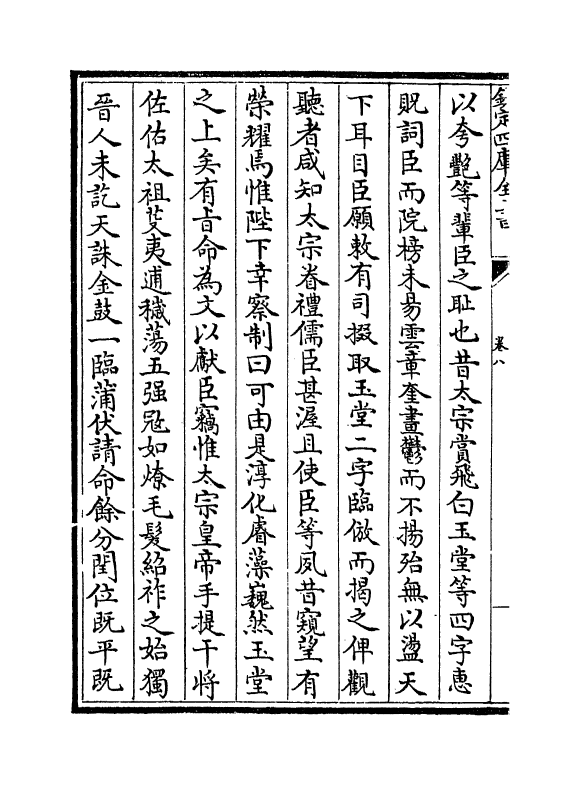 欽定四庫全書
卷八
以夸艷等輩臣之耻也昔太宗嘗飛白玉堂等四字惠
貺詞臣而院榜未易雲章奎畫鬱而不揚殆無以盪天
下耳目臣願敕有司掇取玉堂二字臨倣而揭之俾觀
聽者咸知太宗眷禮儒臣甚渥且使臣等夙昔窺望有
榮耀焉惟陛下幸察制曰可由是淳化睿藻巍然玉堂
之上矣有旨命為文以獻臣竊惟太宗皇帝手提干将
佐佑太祖芟夷逋穢蕩五强冦如燎毛髮紹祚之始獨
晉人未訖天誅金鼓一臨蒲伏請命餘分閏位既平既